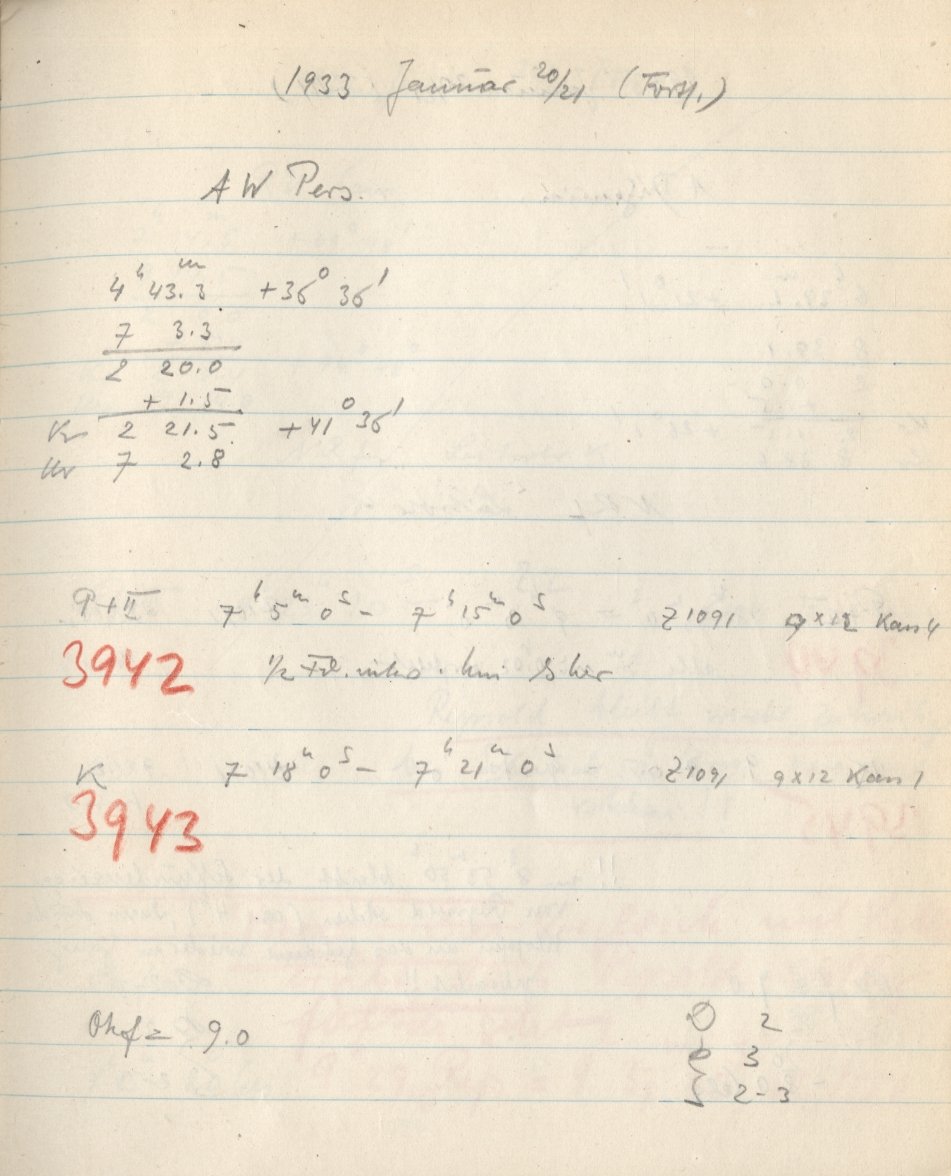 1933 Januar 20/21 (Forts.)
AW Pers.
4h 43.3m +36° 36'
7 3.3
2 20.0
+ 1.5
2 21.5 +41° 36'
7 2.8
P+II 7h 5m 0s – 7h 15m 0s Z1091 9x12 Kass 4
3942 1/2
K 7 18m 0s – 7h 21m 0s Z1091 9x12 Kass 1
3943
Okof = 9.0
2
3
2-3